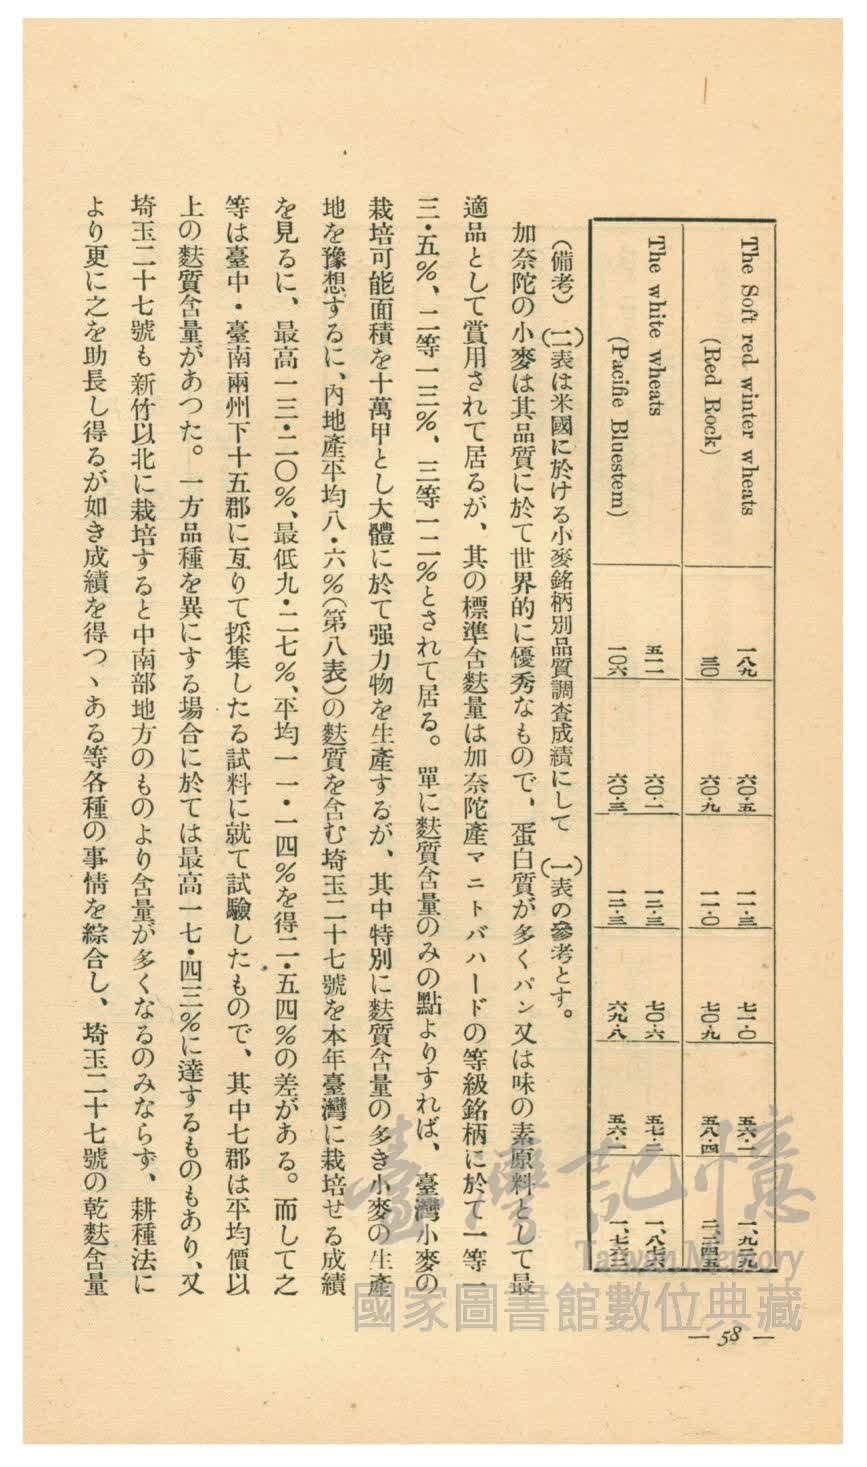 The Soft red winter wheats 一八九 六〇・五 一一・三 七一・〇 五六・一 一、九二九
(Red Rock) 三〇 六〇・九 一一・〇 七〇・九 五八・四 二、二四五
The white wheats 五一一 六〇・一 一二・三 七〇・六 五七・二 一、八七六
(Pacifie Bluestem) 一〇六 六〇・三 一二・三 六九・八 五六・一 一、七六三
(備考) (二)表は米國に於ける小麥銘柄別品質調査成績にして (一)表の參考とす。
加奈陀の小麥は其品質に於て世界的に優秀なもので、蛋白質が多くパン又は味の素原料として最
適品として賞用されて居るが、其の標準含麩量は加奈陀產マニトバハードの等級銘柄に於て一等一
三・五%、二等一三%、三等一二%とされて居る。單に麩質含量のみの點よりすれば、臺灣小麥の
栽培可能面積を十萬甲とし大體に於て强力物を生產するが、其中特別に麩質含量の多き小麥の生產
地を豫想するに、內地產平均八・六%(第八表)の麩質を含む埼玉二十七號を本年臺灣に栽培せる成績
を見るに、最高一三・二〇%、最低九・二七%、平均一一・一四%を得二・五四%の差がある。而して之
等は臺中・臺南兩州下十五郡に亙りて採集したる試料に就て試驗したもので、其中七郡は平均價以
上の麩質含量があつた。一方品種を異にする場合に於ては最高一七・四三%に達するものもあり、又
埼玉二十七號も新竹以北に栽培すると中南部地方のものより含量が多くなるのみならず、耕種法に
より更に之を助長し得るが如き成績を得つゝある等各種の事情を綜合し、埼玉二十七號の乾麩含量
— 58 —
臺灣記憶
Taiwan Memory
國家圖書館數位典藏